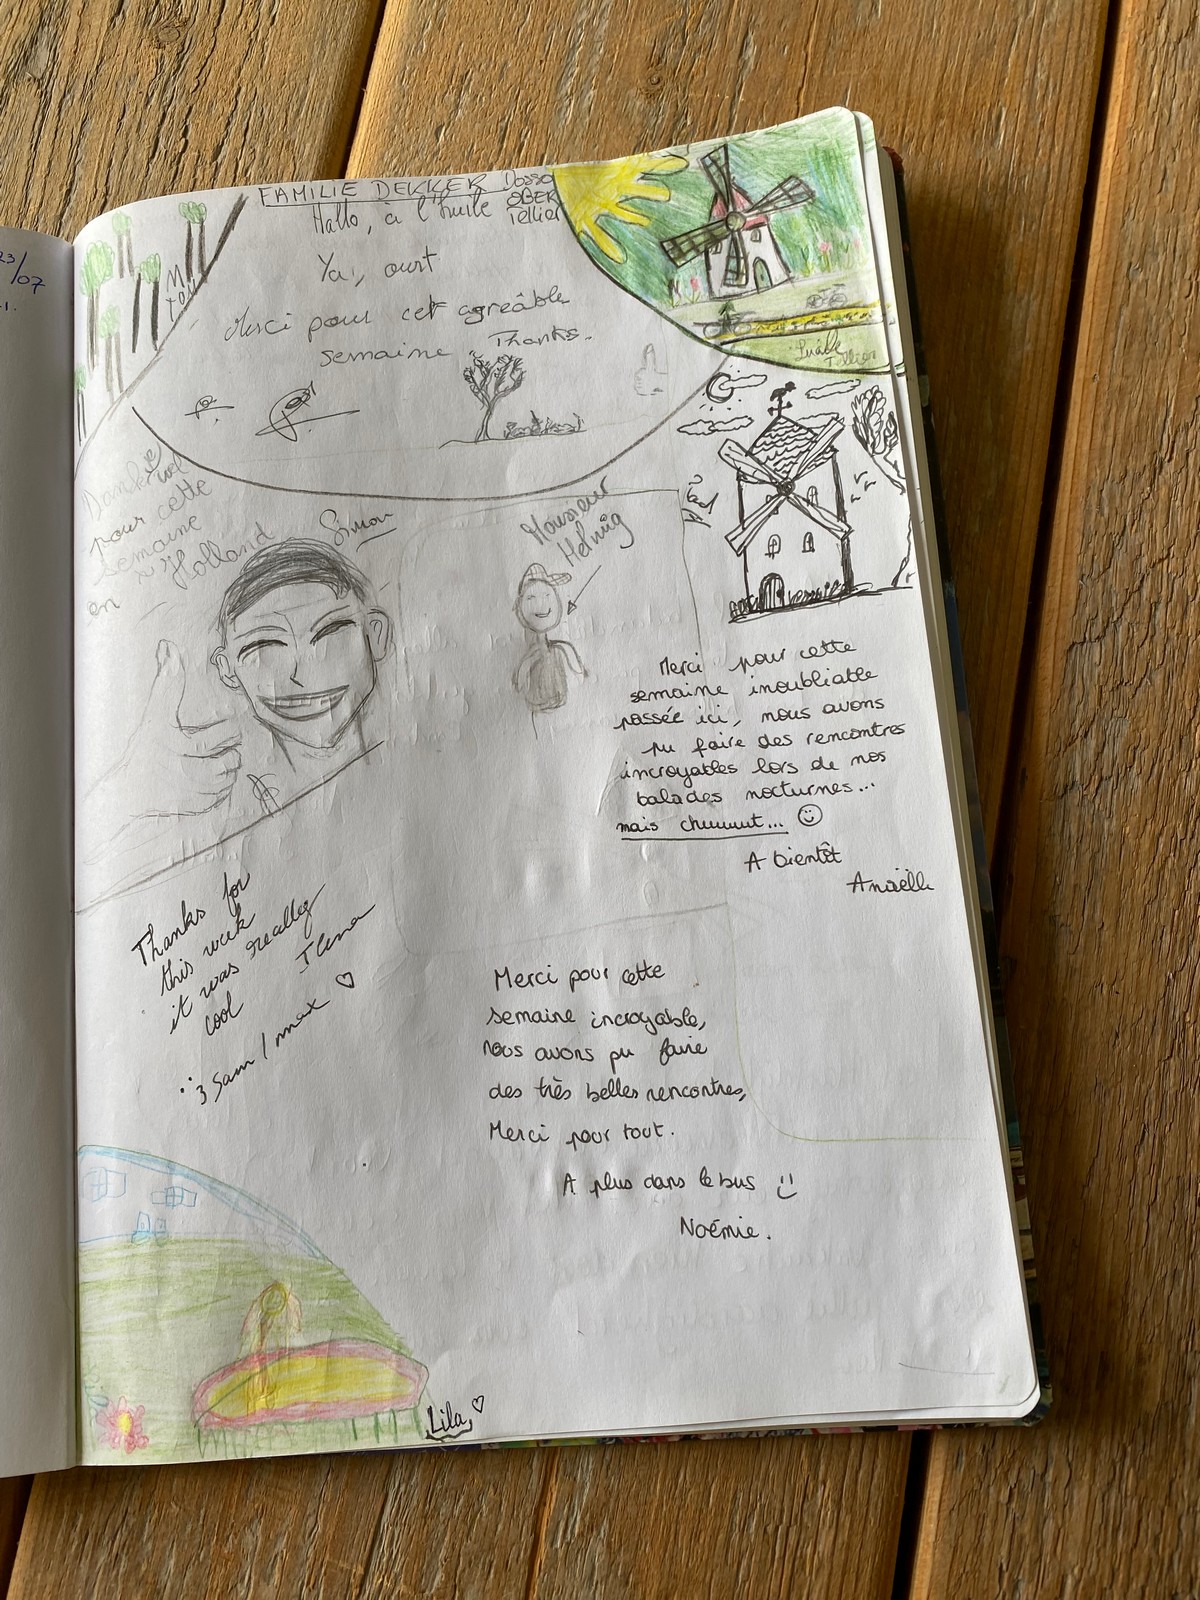 23/07
FAMILIE DEKKER
Dosso
OGER
Tellier
Hallo, à l'huile
Ya!, ourt
Merci pour cet agréable
semaine Thanks.
Tellier
pour cette
semaine
en Holland
Simon
Monsieur
Helwig
Merci pour cette
semaine inoubliable
passée ici, nous avons
pu faire des rencontres
incroyables lors de nos
balades nocturnes...
mais chuuuut... ☺
A bientôt
Anaëlle
Thanks for
this week
it was really
cool
Sam / max ♡
Merci pour cette
semaine incroyable,
Nous avons pu faire
des très belles rencontres,
Merci pour tout.
A plus dans le bus
Noémie.
Lila ♡